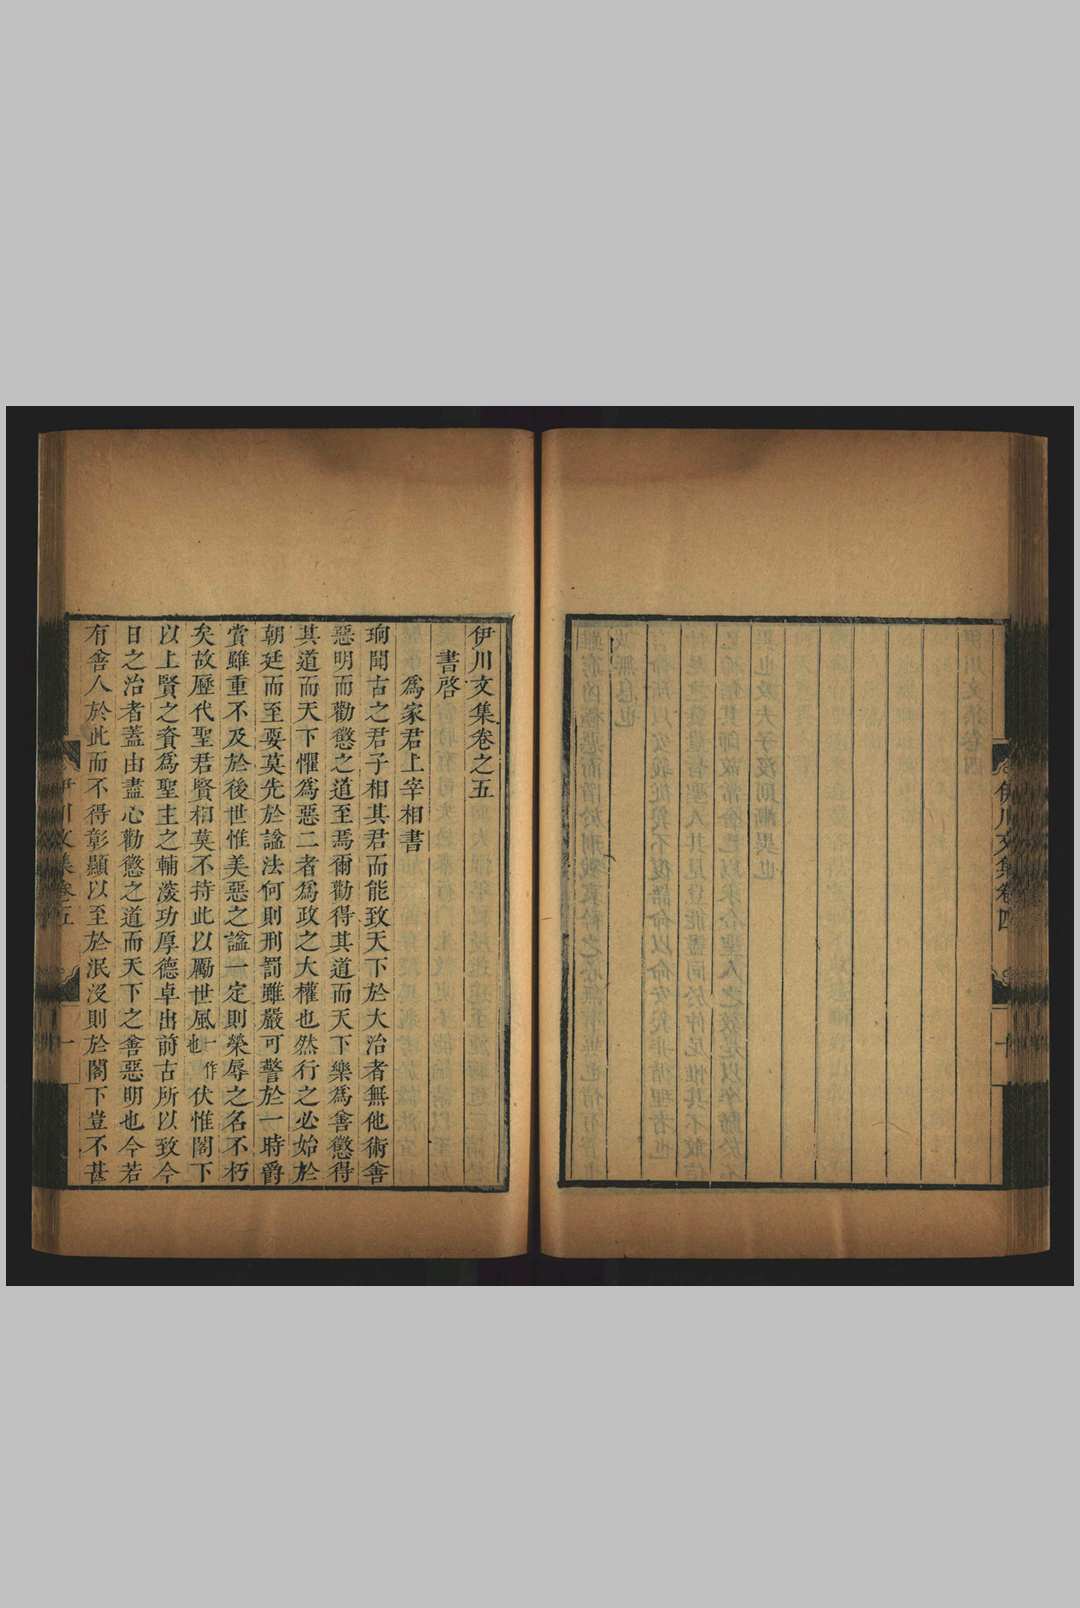 伊川文集卷四
十
伊川文集卷之五
書啓
爲家君上宰相書
珦聞古之君子相其君而能致天下於大治者無他術善
惡明而勸懲之道至焉爾勸得其道而天下樂爲善懲得
其道而天下懼爲惡二者爲政之大權也然行之必始於
朝廷而至要莫先於謚法何則刑罰雖嚴可警於一時爵
賞雖重不及於後世惟美惡之謚一定則榮辱之名不朽
矣故歷代聖君賢相莫不持此以勵世風一作也伏惟閣下
以上賢之資爲聖主之輔濬功厚德卓出前古所以致今
日之治者蓋由盡心勸懲之道而天下之善惡明也今若
有善人於此而不得彰顯以至於泯沒則於閣下豈不甚
伊川文集卷五
一